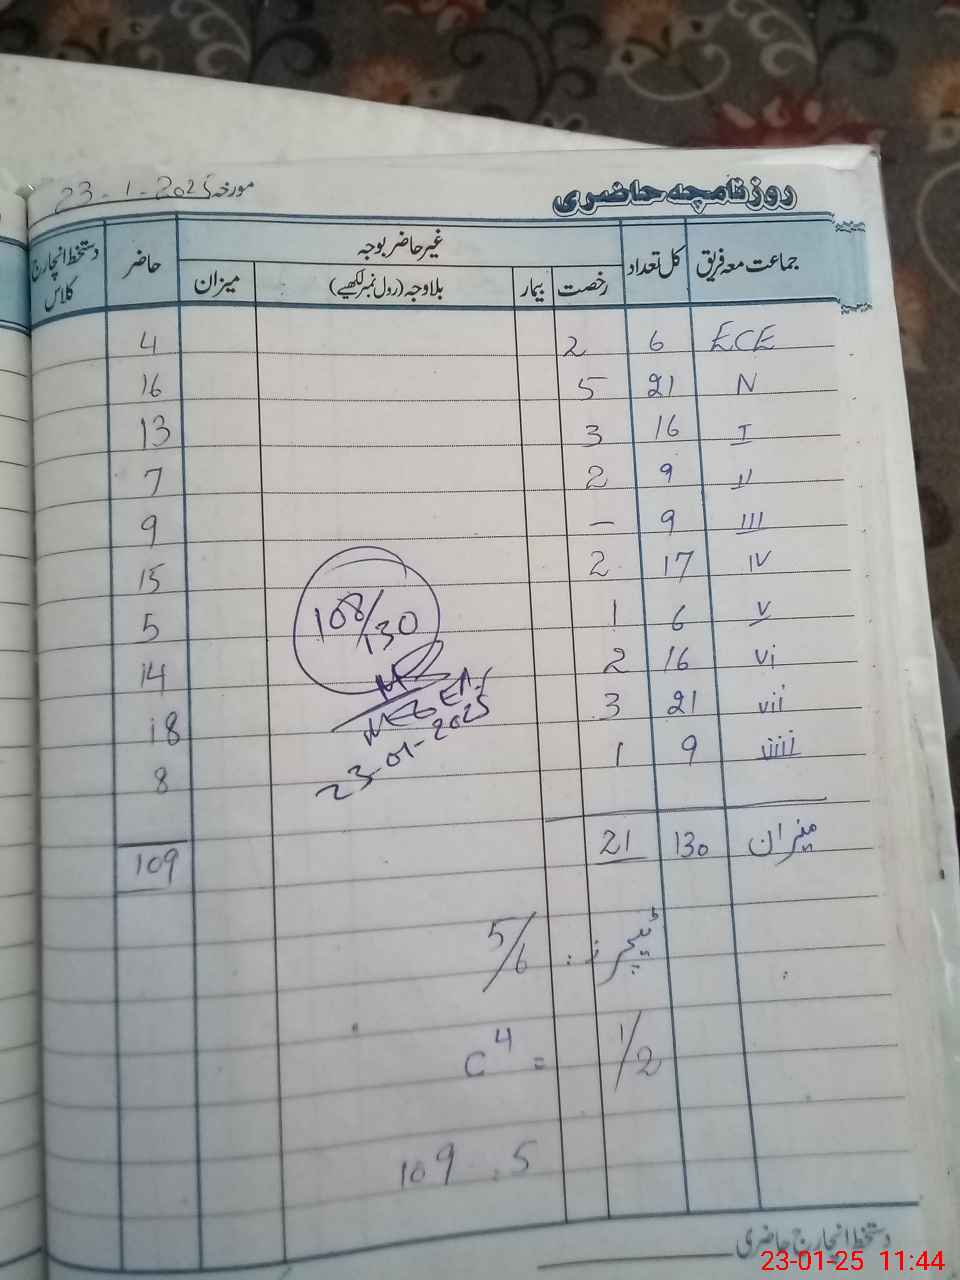 روزنامچہ حاضری مورخہ 23-1-2025
جماعت معہ فریق کل تعداد غیر حاضر بوجہ حاضر دستخط انچارج کلاس
رخصت بیمار بلاوجہ (رول نمبر لکھیے) میزان
ECE 6 2 4
N 21 5 16
I 16 3 13
II 9 2 7
III 9 – 9
IV 17 2 15
V 6 1 5
vi 16 2 14
vii 21 3 18
viiii 9 1 8
میزان 130 21 109
108/130
23-01-2025
ٹیچرز : 5/6
C4 = 1/2
109 . 5
دستخط انچارج حاضری
23-01-25 11:44